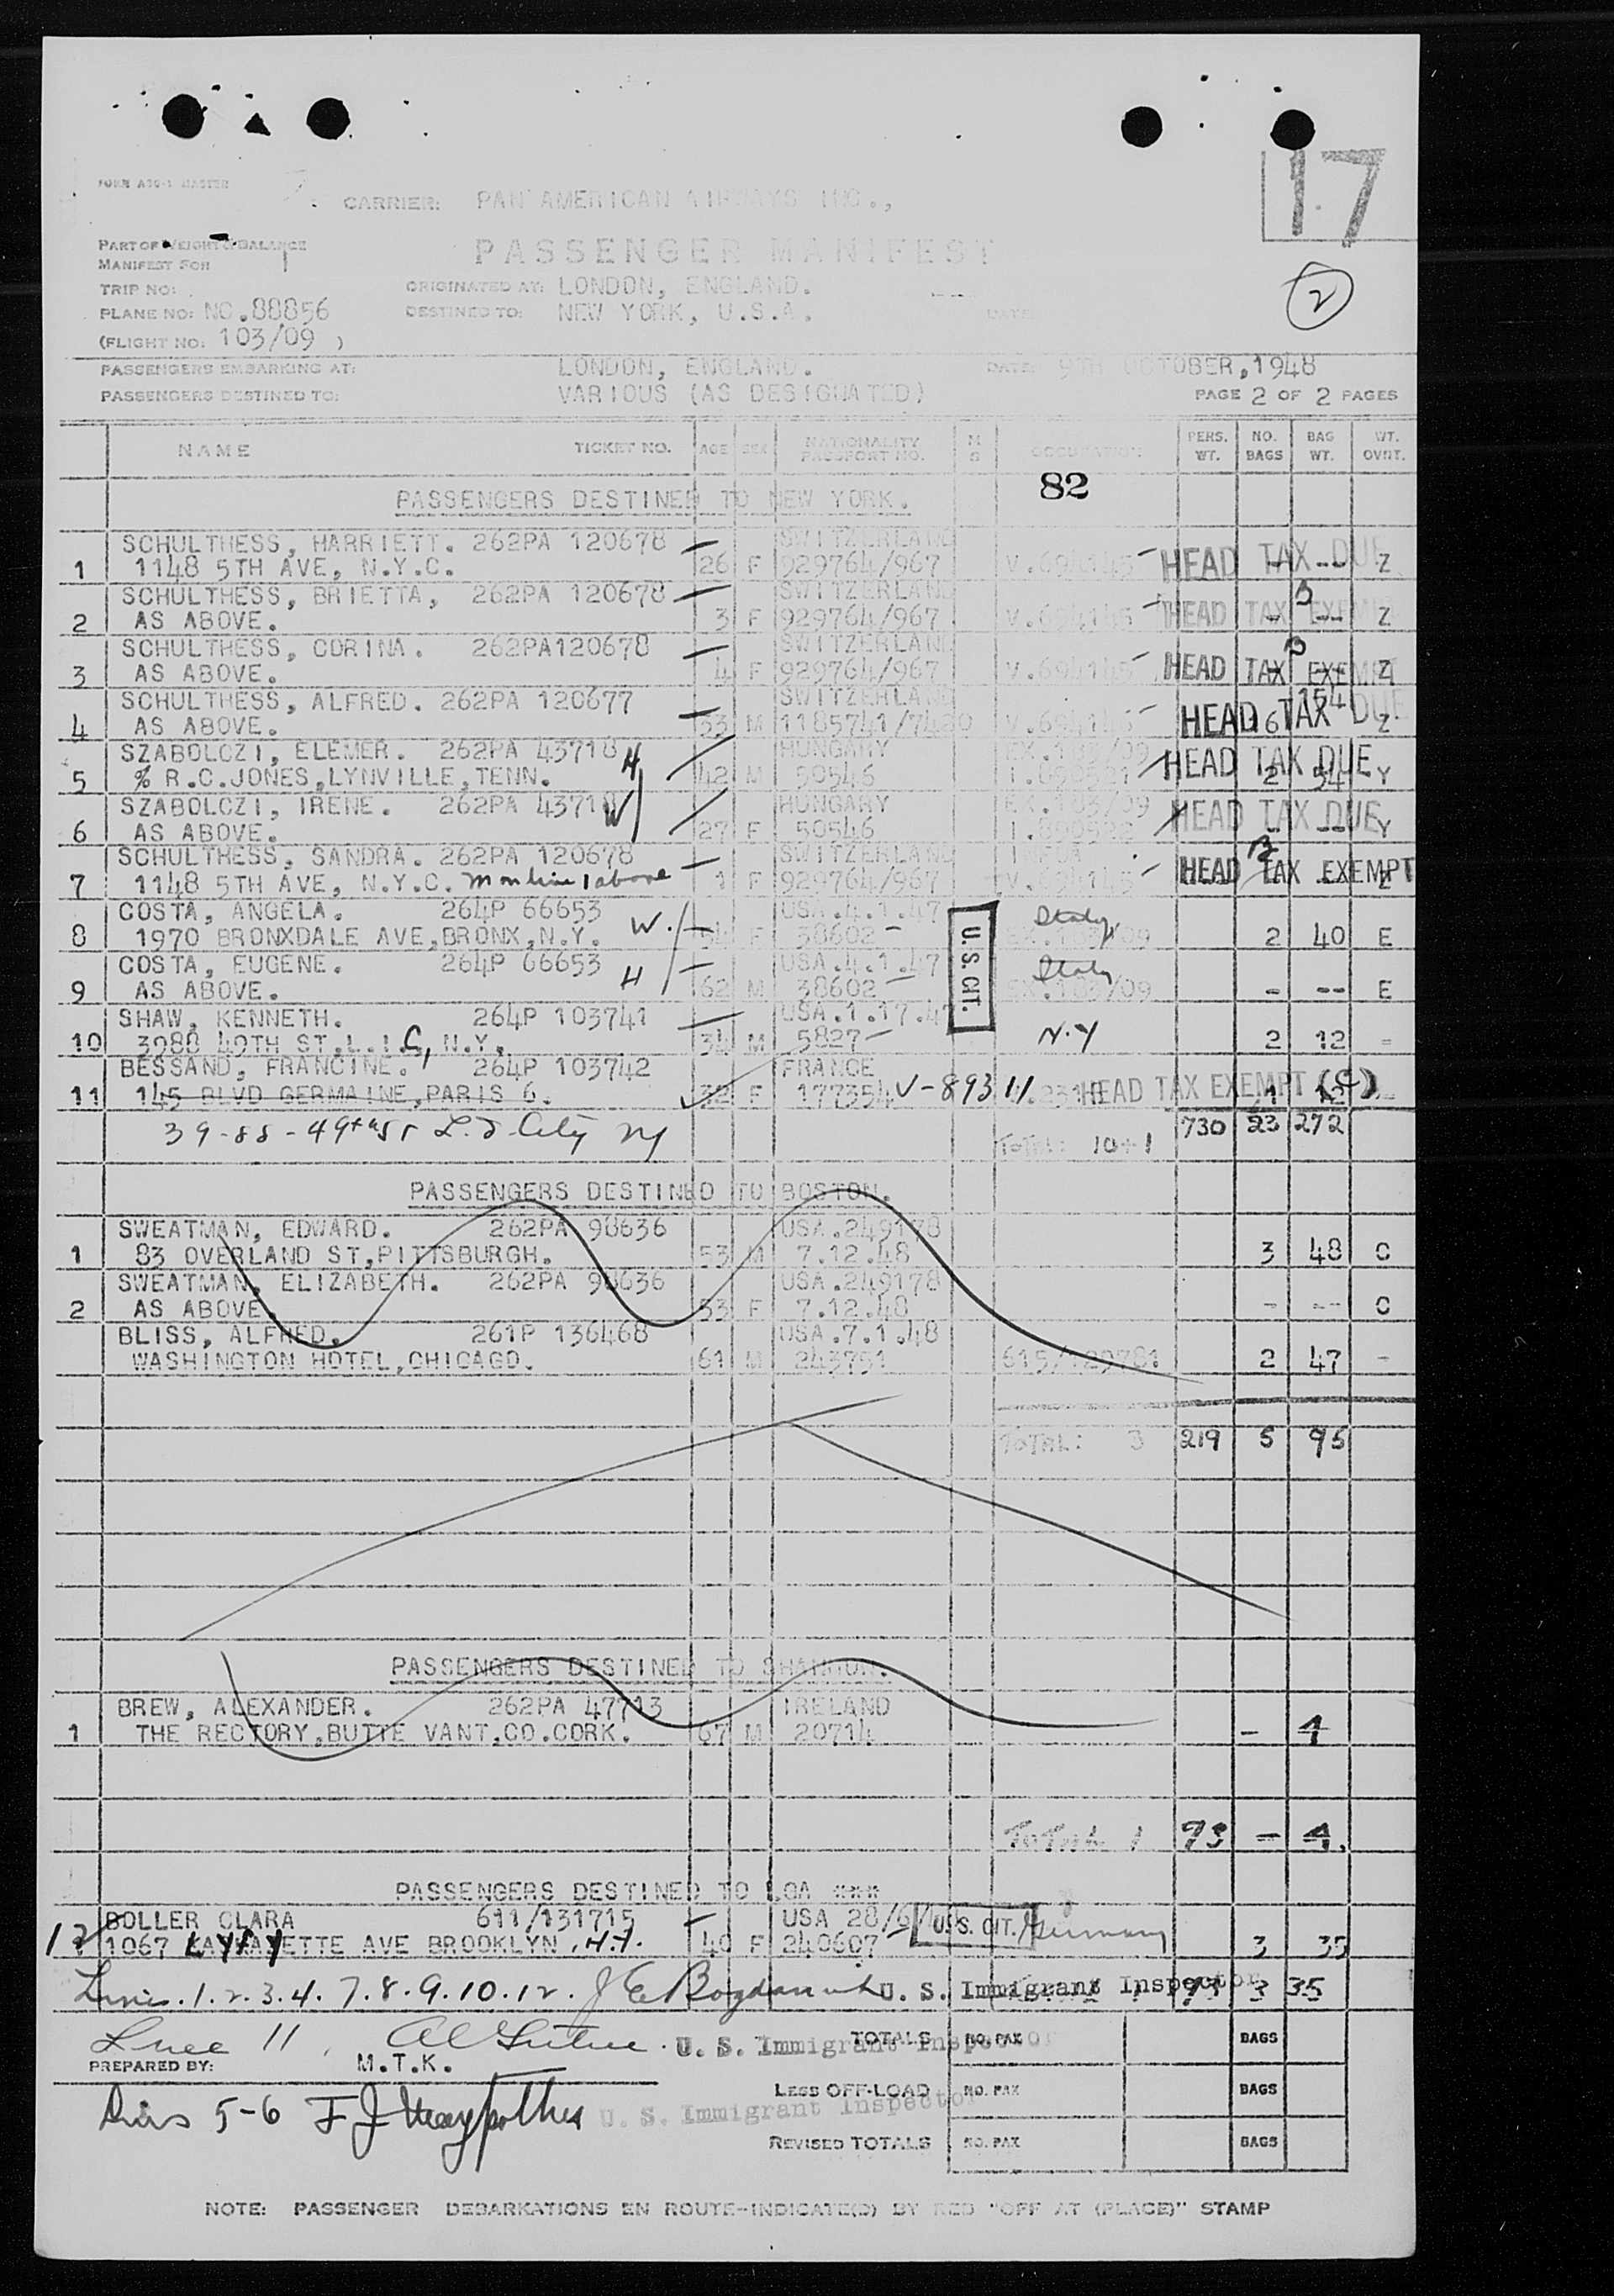 17
FORM
CARRIER: PAN AMERICAN AIRWAYS INC.,
PART OF WEIGHT & BALANCE
MANIFEST FOR
PASSENGER MANIFEST
2
TRIP NO: ORIGINATED AT: LONDON, ENGLAND.
PLANE NO: NC.88856 DESTINED TO: NEW YORK, U.S.A. DATE
(FLIGHT NO: 103/09 )
PASSENGERS EMBARKING AT: LONDON, ENGLAND. DATE: 9TH OCTOBER,1948
PASSENGERS DESTINED TO: VARIOUS (AS DESIGNATED) PAGE 2 OF 2 PAGES
NAME TICKET NO. AGE SEX NATIONALITY PASSPORT NO. M S OCCUPATION PERS. WT. NO. BAGS BAG WT. WT. OVRT.
82
PASSENGERS DESTINED TO NEW YORK.
SCHULTHESS, HARRIETT. 262PA 120678 SWITZERLAND
1 1148 5TH AVE, N.Y.C. 26 F 929764/967 V.694145 HEAD TAX DUE - -- Z
SCHULTHESS, BRIETTA, 262PA 120678 SWITZERLAND
2 AS ABOVE. 3 F 929764/967 V.694145 HEAD TAX EXEMPT - -- Z
SCHULTHESS, CORINA. 262PA120678 SWITZERLAND
3 AS ABOVE. 4 F 929764/967 V.694145 HEAD TAX EXEMPT Z
SCHULTHESS, ALFRED. 262PA 120677 SWITZERLAND 154
4 AS ABOVE. 33 M 1185741/7420 V.694145 HEAD TAX DUE 16 Z
SZABOLCZI, ELEMER. 262PA 43718 H HUNGARY EX.103/09
5 % R.C.JONES,LYNVILLE,TENN. 42 M 50546 HEAD TAX DUE 2 54 Y
SZABOLCZI, IRENE. 262PA 43718 W HUNGARY EX.103/09
6 AS ABOVE. 27 F 50546 HEAD TAX DUE - -- Y
SCHULTHESS, SANDRA. 262PA 120678 SWITZERLAND
7 1148 5TH AVE, N.Y.C. m on line 1 above 1 F 929764/967 V.694145 HEAD TAX EXEMPT Z
COSTA, ANGELA. 264P 66653 W. USA.4.1.47 Italy
8 1970 BRONXDALE AVE,BRONX,N.Y. 54 F 38602 U.S. CIT. EX.103/09 2 40 E
COSTA, EUGENE. 264P 66653 H USA.4.1.47 Italy
9 AS ABOVE. 62 M 38602 EX.103/09 - -- E
SHAW, KENNETH. 264P 103741 USA.1.17.47
10 3988 49TH ST.L.I.C, N.Y. 34 M 5827 N.Y 2 12 -
BESSAND, FRANCINE. 264P 103742 FRANCE
11 145 BLVD GERMAINE,PARIS 6. 32 F 177354 V-893 HEAD TAX EXEMPT (C) 1 12 -
39-88-49th St L.I. City NY TOTAL: 10+1 730 23 272
PASSENGERS DESTINED TO BOSTON.
SWEATMAN, EDWARD. 262PA 98636 USA.249178
1 83 OVERLAND ST,PITTSBURGH. 53 M 7.12.48 3 48 C
SWEATMAN, ELIZABETH. 262PA 98636 USA.249178
2 AS ABOVE. 53 F 7.12.48 - -- C
BLISS, ALFRED. 261P 136468 USA.7.1.48
WASHINGTON HOTEL,CHICAGO. 61 M 243751 615/129781 2 47 -
TOTAL: 3 219 5 95
PASSENGERS DESTINED TO SHANNON.
BREW, ALEXANDER. 262PA 47713 IRELAND
1 THE RECTORY,BUTTE VANT.CO.CORK. 67 M 20714 - 4
TOTAL 1 93 - 4.
PASSENGERS DESTINED TO LGA ***
BOLLER CLARA 611/131715 USA 28/6/ U.S. CIT. Germany
12 1067 LAFAYETTE AVE BROOKLYN .N.Y. 40 F 240607 3 35
Lines.1.2.3.4.7.8.9.10.12. U. S. Immigrant Inspector 3 35
Line 11, U. S. Immigrant Inspector TOTALS NO. PAX BAGS
PREPARED BY: M.T.K.
LESS OFF-LOAD NO. PAX BAGS
Lines 5-6 U. S. Immigrant Inspector
REVISED TOTALS NO. PAX BAGS
NOTE: PASSENGER DEBARKATIONS EN ROUTE-INDICATE(D) BY RED "OFF AT (PLACE)" STAMP